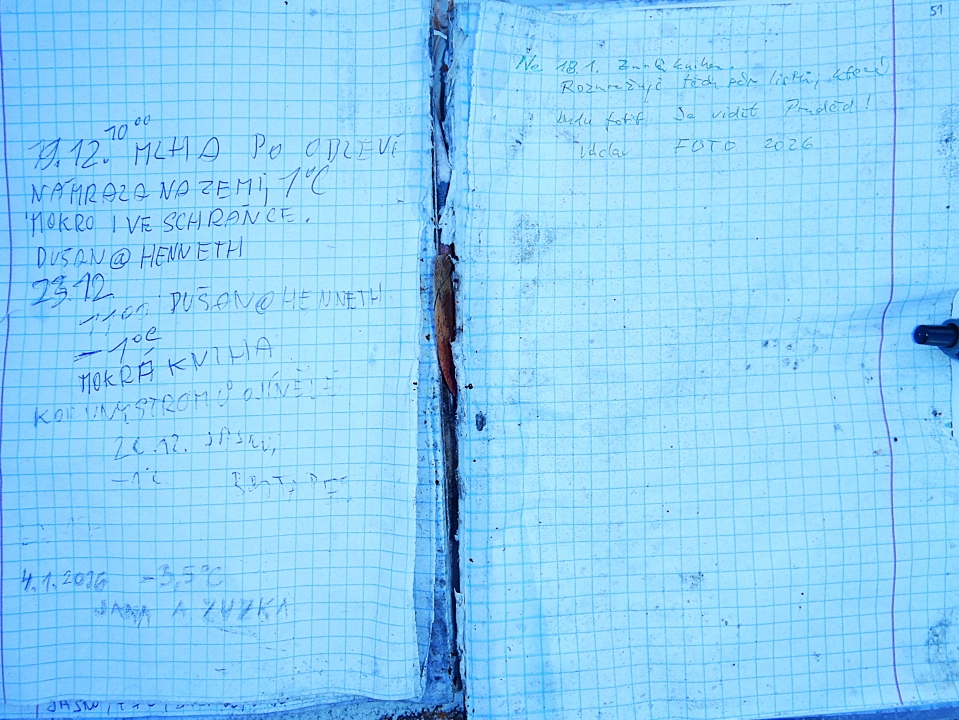 19.12. 10⁰⁰ MLHA PO OBLEVĚ
NÁMRAZA NA ZEMI, 1°C
MOKRO I VE SCHRÁNCE.
DUŠAN@HENNETH
23.12
DUŠAN@HENNETH
-1°C
MOKRÁ KNIHA
KORUNY STROMŮ OJÍNĚLÉ
12. JASNO,
-1°C
4.1.2026 -3,5°C
JANA A ZUZKA
51
Ne. 18.1. kniha.
Rozmrazuji těch pár listů, které
budu fotit. Je vidět Praděd!
Václav FOTO 2026